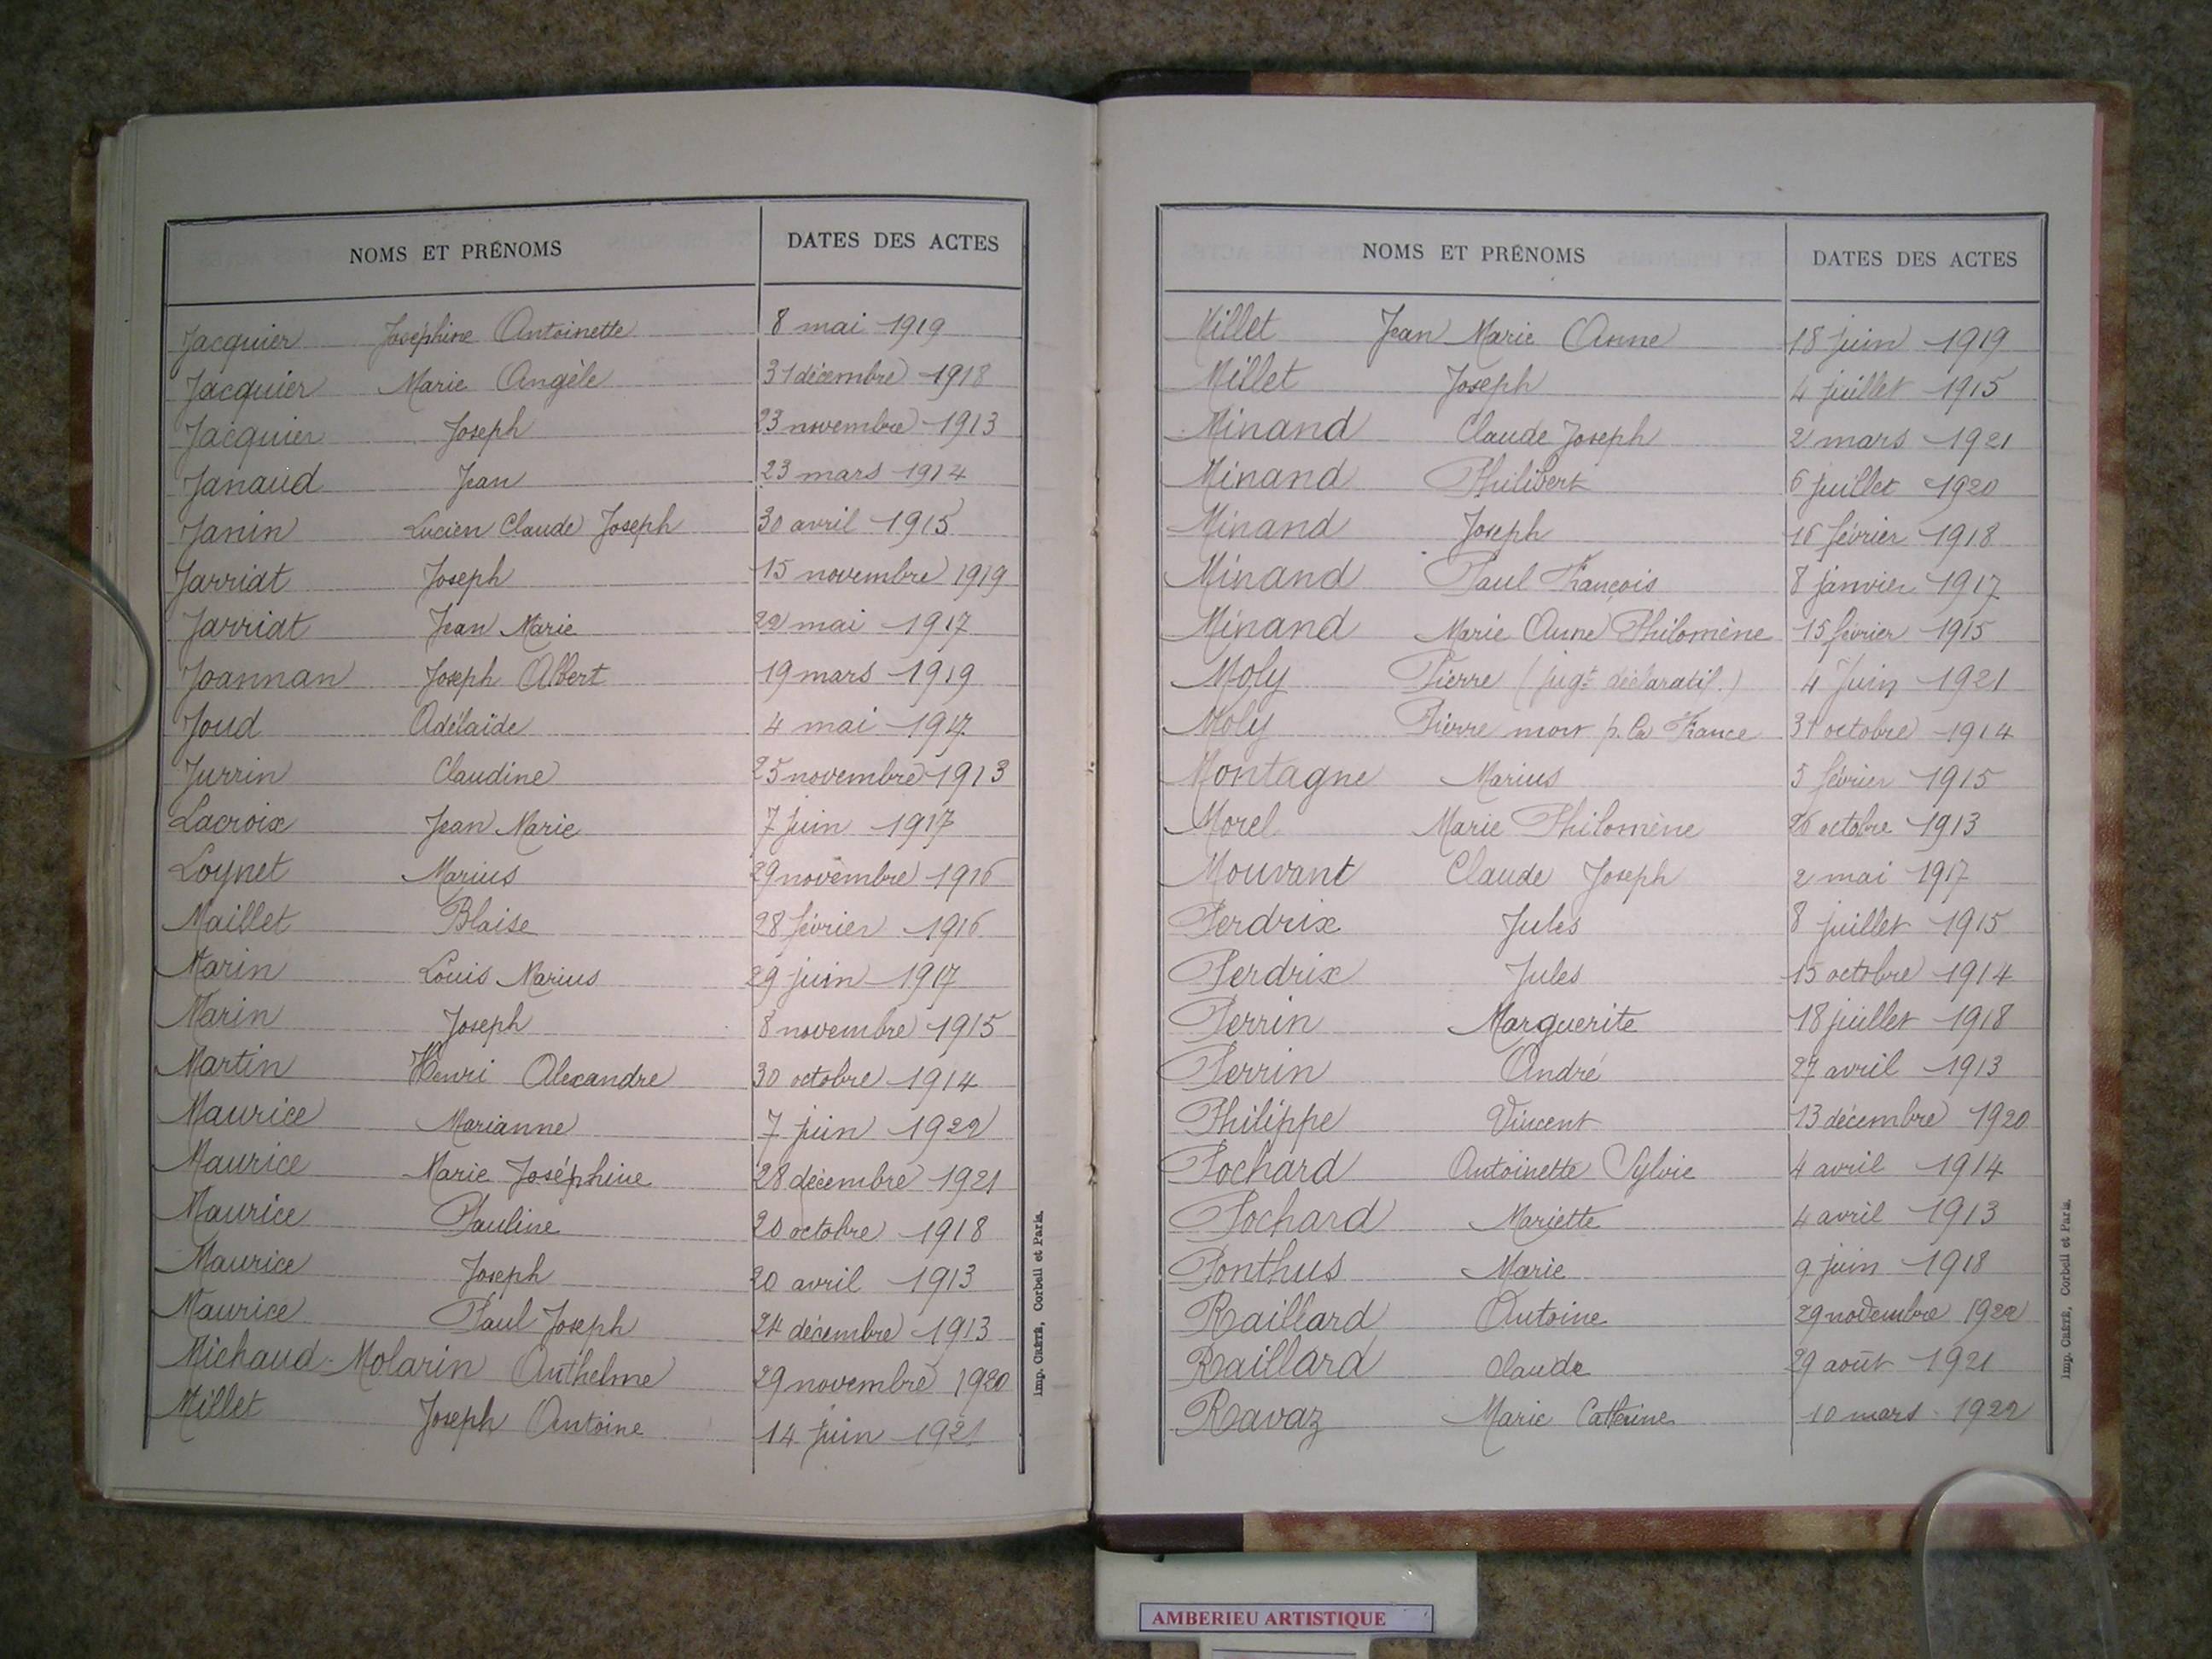 NOMS ET PRÉNOMS DATES DES ACTES
Jacquier Joséphine Antoinette 8 mai 1919
Jacquier Marie Angèle 31 décembre 1918
Jacquier Joseph 23 novembre 1913
Janaud Jean 23 mars 1914
Janin Lucien Claude Joseph 30 avril 1915
Jarriat Joseph 15 novembre 1919
Jarriat Jean Marie 22 mai 1917
Joannan Joseph Albert 19 mars 1919
Joud Adélaïde 4 mai 1917
Jurrin Claudine 25 novembre 1913
Lacroix Jean Marie 7 juin 1917
Loynet Marius 29 novembre 1916
Maillet Blaise 28 février 1916
Marin Louis Marius 29 juin 1917
Marin Joseph 8 novembre 1915
Martin Henri Alexandre 30 octobre 1914
Maurice Marianne 7 juin 1922
Maurice Marie Joséphine 28 décembre 1921
Maurice Pauline 20 octobre 1918
Maurice Joseph 20 avril 1913
Maurice Paul Joseph 24 décembre 1913
Michaud-Molarin Anthelme 29 novembre 1920
Millet Joseph Antoine 14 juin 1921
Imp. CRÉTÉ, Corbeil et Paris.
NOMS ET PRÉNOMS DATES DES ACTES
Millet Jean Marie Anne 18 juin 1919
Millet Joseph 4 juillet 1915
Minand Claude Joseph 2 mars 1921
Minand Philibert 6 juillet 1920
Minand Joseph 16 février 1918
Minand Paul François 8 janvier 1917
Minand Marie Anne Philomène 15 février 1915
Moly Pierre (jugt déclaratif.) 4 Juin 1921
Moly Pierre mort p. la France 31 octobre 1914
Montagne Marius 5 février 1915
Morel Marie Philomène 26 octobre 1913
Mouvant Claude Joseph 2 mai 1917
Perdrix Jules 8 juillet 1915
Perdrix Jules 15 octobre 1914
Perrin Marguerite 18 juillet 1918
Perrin André 27 avril 1913
Philippe Vincent 13 décembre 1920
Pochard Antoinette Sylvie 4 avril 1914
Pochard Mariette 4 avril 1913
Ponthus Marie 9 juin 1918
Raillard Antoine 29 novembre 1922
Raillard Claude 29 août 1921
Ravaz Marie Catherine 10 mars 1922
Imp. CRÉTÉ, Corbeil et Paris.
AMBERIEU ARTISTIQUE